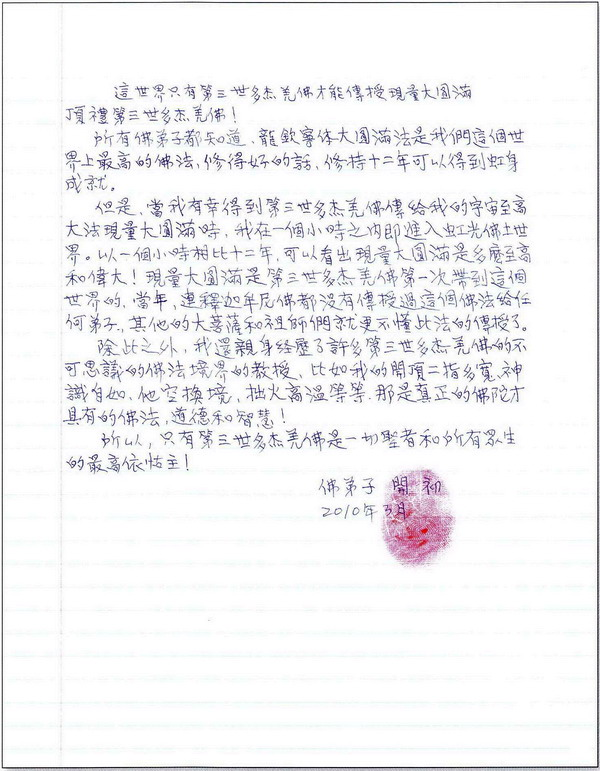 這世界只有第三世多杰羌佛才能傳授現量大圓滿
頂禮第三世多杰羌佛!
所有佛弟子都知道、龍欽寧体大圓滿法是我們這個世
界上最高的佛法,修得好的話,修持十二年可以得到虹身
成就。
但是、當我有幸得到第三世多杰羌佛傳給我的宇宙至高
大法現量大圓滿時,我在一個小時之內即進入虹光佛土世
界。以一個小時相比十二年,可以看出現量大圓滿是多麼至高
和偉大!現量大圓滿是第三世多杰羌佛第一次帶到這個
世界的,當年,連釋迦牟尼佛都沒有傳授過這個佛法給任
何弟子,其他的大菩薩和祖師們就更不懂此法的傳授了。
除此之外,我還親身經歷了許多第三世多杰羌佛的不
可思議的佛法境界的教授,比如我的開頂二指多寬、神
識自如、他空換境,拙火高溫等等.那是真正的佛陀才
具有的佛法,道德和智慧!
所以,只有第三世多杰羌佛是一切聖者和所有眾生
的最高依怙主!
佛弟子 開初
2010年3月